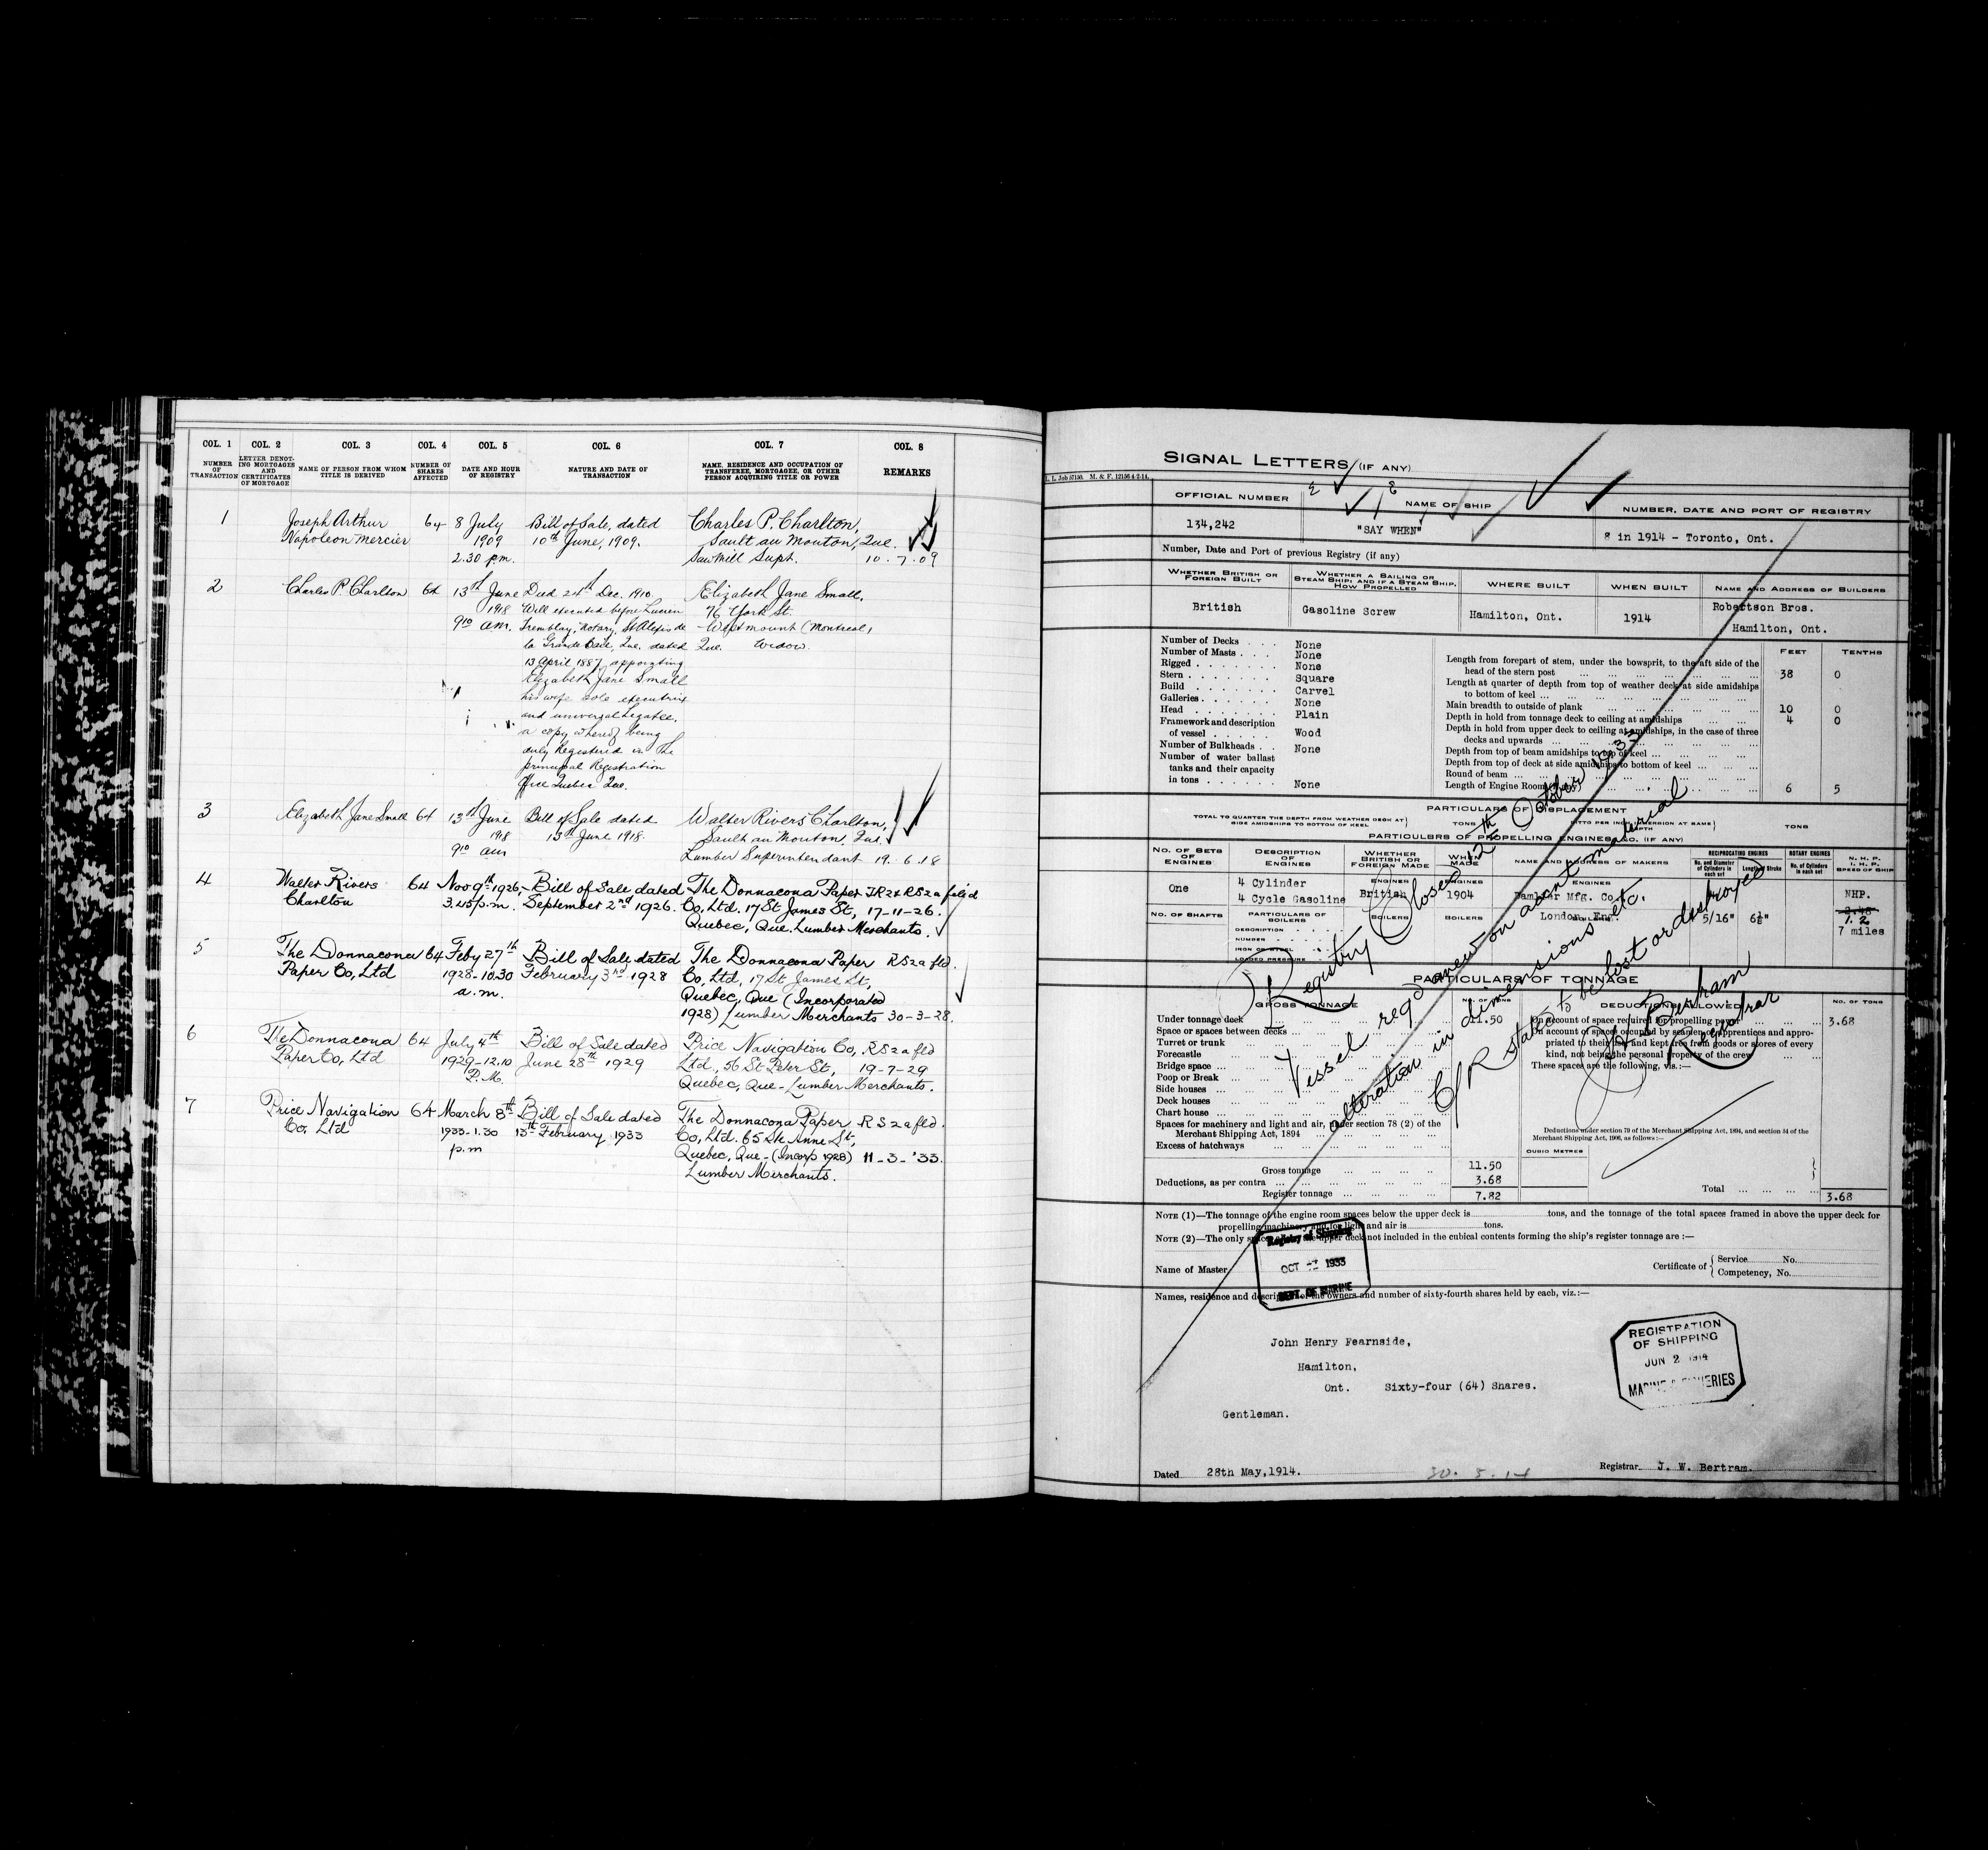 COL. 1 COL. 2 COL. 3 COL. 4 COL. 5 COL. 6 COL. 7 COL. 8
NUMBER OF TRANSACTION
LETTER DENOTING MORTGAGES AND CERTIFICATES OF MORTGAGE
NAME OF PERSON FROM WHOM TITLE IS DERIVED
NUMBER OF SHARES AFFECTED
DATE AND HOUR OF REGISTRY
NATURE AND DATE OF TRANSACTION
NAME, RESIDENCE AND OCCUPATION OF TRANSFEREE, MORTGAGEE, OR OTHER PERSON ACQUIRING TITLE OR POWER
REMARKS
1 Joseph Arthur 64 8 July Bill of Sale, dated Charles P. Charlton,
Napoleon Mercier 1909 10th June, 1909. Sault au Mouton, Que.
2.30 p.m. Saw Mill Supt. 10.7.09
2 Charles P Charlson 64 13th June Died 24th Dec. 1910. Elizabeth Jane Small.
1918 Will executed before Lucien 76 York St.
9 10 am. Tremblay, Notary, St Alexis de Westmount (Montreal,
la Grande Baie, Que. dated Que. Widow.
13 April 1887, appointing
Elizabeth Jane Small
his wife sole executrix
and universal Legatee.
a copy whereof being
duly Registered in the
principal Registration
Office Quebec Que.
3 Elizabeth Jane Small 64 13th June Bill of Sale dated Walter Rivers Charlton,
1918 13th June 1918. Sault au Mouton, Que.
9 10 am Lumber Superintendant 19.6.18
4 Walter Rivers 64 Nov 9th 1926, Bill of Sale dated The Donnacona Paper TR2 & RS2a filed
Charlton 3.45 p.m. September 2nd 1926. Co, Ltd. 17 St James St, 17-11-26.
Quebec, Que. Lumber Merchants.
5 The Donnacona 64 Feby 27th Bill of Sale, dated The Donnacona Paper RS2a fld.
Paper Co, Ltd 1928-10.30 February 3rd 1928 Co, Ltd, 17 St James St,
a.m. Quebec, Que (Incorporated
1928) Lumber Merchants 30-3-28.
6 The Donnacona 64 July 4th Bill of Sale dated Price Navigation Co, RS2a fld
Paper Co, Ltd 1929-12.10 June 28th 1929 Ltd, 56 St Peter St, 19-7-29
P.M. Quebec, Que - Lumber Merchants.
7 Price Navigation 64 March 8th Bill of Sale dated The Donnacona Paper RS2a fld.
Co, Ltd 1933-1.30 13th February 1933 Co, Ltd. 65 Ste Anne St,
p.m Quebec, Que - (Incorp 1928) 11-3-'33.
Lumber Merchants.
SIGNAL LETTERS (IF ANY)
L. L. Job 57150. M. & F. 12156 4-2-14.
OFFICIAL NUMBER NAME OF SHIP NUMBER, DATE AND PORT OF REGISTRY
134,242 "SAY WHEN" 8 in 1914 - Toronto, Ont.
Number, Date and Port of previous Registry (if any)
WHETHER BRITISH OR FOREIGN BUILT
WHETHER A SAILING OR STEAM SHIP, AND IF A STEAM SHIP, HOW PROPELLED
WHERE BUILT WHEN BUILT NAME AND ADDRESS OF BUILDERS
British Gasoline Screw Hamilton, Ont. 1914 Robertson Bros.
Hamilton, Ont.
Number of Decks None
Number of Masts None
Rigged None
Stern Square
Build Carvel
Galleries None
Head Plain
Framework and description of vessel Wood
Number of Bulkheads None
Number of water ballast tanks and their capacity in tons None
FEET TENTHS
Length from forepart of stem, under the bowsprit, to the aft side of the
head of the stern post 38 0
Length at quarter of depth from top of weather deck at side amidships
to bottom of keel
Main breadth to outside of plank 10 0
Depth in hold from tonnage deck to ceiling at amidships 4 0
Depth in hold from upper deck to ceiling at amidships, in the case of three
decks and upwards
Depth from top of beam amidships to top of keel
Depth from top of deck at side amidships to bottom of keel
Round of beam
Length of Engine Room 6 5
PARTICULARS OF DISPLACEMENT
TOTAL TO QUARTER THE DEPTH FROM WEATHER DECK AT SIDE AMIDSHIPS TO BOTTOM OF KEEL TONS DITTO PER INCH IMMERSION AT SAME DEPTH TONS
PARTICULARS OF PROPELLING ENGINES, &C. (IF ANY)
NO. OF SETS OF ENGINES
DESCRIPTION OF ENGINES
WHETHER BRITISH OR FOREIGN MADE
WHEN MADE
NAME AND ADDRESS OF MAKERS
RECIPROCATING ENGINES
No. and Diameter of Cylinders in each set
Length of Stroke
ROTARY ENGINES
No. of Cylinders in each set
N. H. P. I. H. P. SPEED OF SHIP
ENGINES ENGINES ENGINES
One 4 Cylinder
4 Cycle Gasoline British 1904 Damlar Mfg. Co. NHP.
London, Eng. 5/16" 6½" 1.2
7 miles
NO. OF SHAFTS PARTICULARS OF BOILERS BOILERS BOILERS
DESCRIPTION
NUMBER
IRON OR STEEL
LOADED PRESSURE
PARTICULARS OF TONNAGE
GROSS TONNAGE NO. OF TONS DEDUCTIONS ALLOWED NO. OF TONS
Under tonnage deck 11.50
Space or spaces between decks
Turret or trunk
Forecastle
Bridge space
Poop or Break
Side houses
Deck houses
Chart house
Spaces for machinery and light and air, under section 78 (2) of the
Merchant Shipping Act, 1894
Excess of hatchways
On account of space required for propelling power 3.68
On account of spaces occupied by seamen or apprentices and appro-
priated to their use and kept free from goods or stores of every
kind, not being the personal property of the crew
These spaces are the following, viz.:—
Deductions under section 79 of the Merchant Shipping Act, 1894, and section 54 of the
Merchant Shipping Act, 1906, as follows:—
CUBIC METRES
Gross tonnage 11.50
Deductions, as per contra 3.68
Register tonnage 7.82
Total 3.68
Registry Closed 12th October 1933
Vessel regd anew on acct material
alteration in dimensions etc.
C/R stated to be lost or destroyed
J W Bertram
Registrar
NOTE (1)—The tonnage of the engine room spaces below the upper deck is tons, and the tonnage of the total spaces framed in above the upper deck for
propelling machinery and for light and air is tons.
NOTE (2)—The only spaces above the upper deck not included in the cubical contents forming the ship's register tonnage are :—
Registry of Shipping
OCT 1933
DEPT. OF MARINE
Name of Master Certificate of Service No.
Competency, No.
Names, residence and description of the owners and number of sixty-fourth shares held by each, viz.:—
John Henry Fearnside,
Hamilton,
Ont. Sixty-four (64) Shares.
Gentleman.
REGISTRATION
OF SHIPPING
JUN 2 1914
MARINE & FISHERIES
Dated 28th May,1914. 30.5.14 Registrar J. W. Bertram.